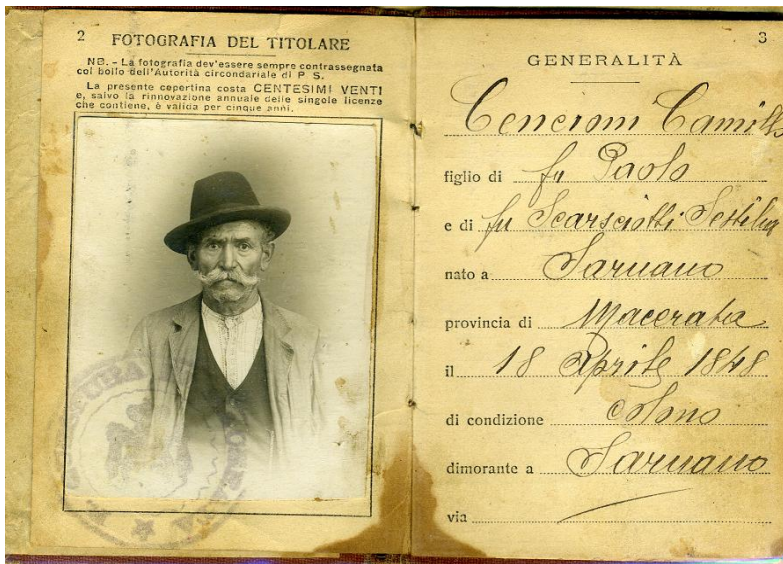 2
FOTOGRAFIA DEL TITOLARE
NB. - La fotografia dev'essere sempre contrassegnata
col bollo dell'Autorità circondariale di P S.
La presente copertina costa CENTESIMI VENTI
e, salvo la rinnovazione annuale delle singole licenze
che contiene, è valida per cinque anni.
3
GENERALITÀ
Cenerоni Camillo
figlio di fu Paolo
e di fu Scarsciotti Sestilia
nato a Sarnano
provincia di Macerata
il 18 Aprile 1848
di condizione colono
dimorante a Sarnano
via